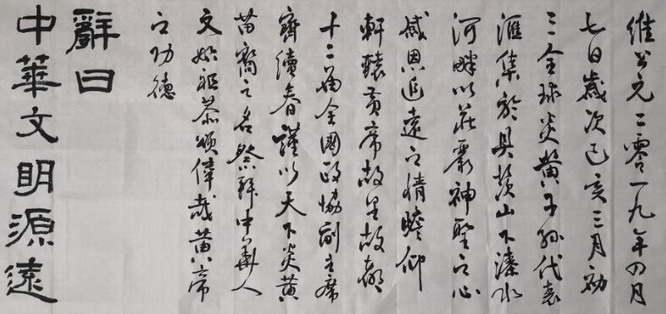 維公元二零一九年四月
七日歲次己亥三月初
三全球炎黄子孫代表
滙集於具茨山下溱水
河畔以莊嚴神聖之心
感恩追遠之情瞻仰
軒轅黄帝故里故都
十二届全國政協副主席
齊續春謹以天下炎黄
苗裔之名祭拜中華人
文始祖恭頌偉哉黄帝
之功德
辭曰
中華文明源遠